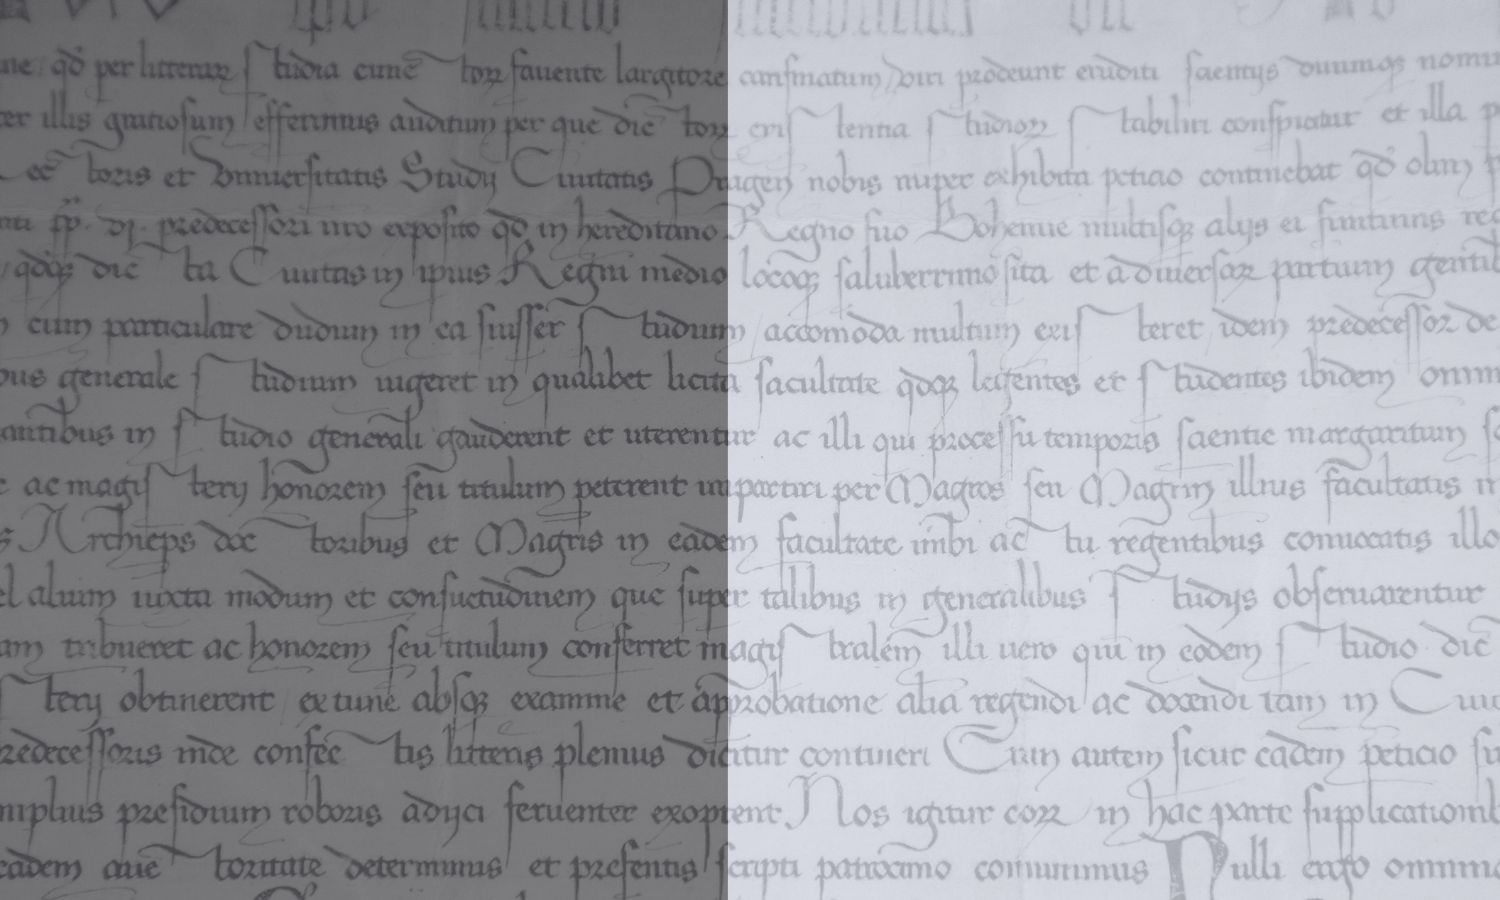 ne qđ per litteras studia cunc tor fauente largitore consumatum viri prodeunt eruditi scientijs diuinusq nomin
er illis gratiosum efferimus auditum per que dic tor eris tentia studior stabiliri conspiciatur et illa p
toris et Vniuersitatis Studij Ciuitatis Pragen nobis nuper exhibita peticio continebat qđ olim
pp. vj. predecessori nro exposito qđ in hereditario Regno suo Bohemie multisq alijs ei finitimis reg
qđq dic ta Ciuitas in ipius Regni medio locoq saluberrimo sita et a diuersar partium gentib
cum particulare dudum in ea fuisset studium accomoda multum exis teret idem predecessor de
ous generale studium uigeret in qualibet licita facultate qđq legentes et studentes ibidem omni
antibus in studio generali gauderent et uterentur ac illi qui processu temporis scientie margaritam
ac magis terij honorem seu titulum peterent impartiri per Magros seu Magrm illius facultatis in
s Archieps doc toribus et Magris in eadem facultate inibi ac tu regentibus conuocatis illo
el alium iuxta modum et consuetudinem que super talibus in generalibus studijs obseruarentur
am tribueret ac honorem seu titulum conferret magis tralem illi uero qui in eodem studio dic
sterij obtinerent extunc absq examine et approbatione alia regendi ac docendi tam in Ciui
redecessoris inde confec tis litteris plenius dicitur contineri Cum autem sicut eadem peticio su
mplius presidium roboris adijci feruenter exoptent Nos igitur corr in hac parte supplicationib
eadem auc toritate determinus et presentis scripti patrocinio comunimus Nulli ergo omnino